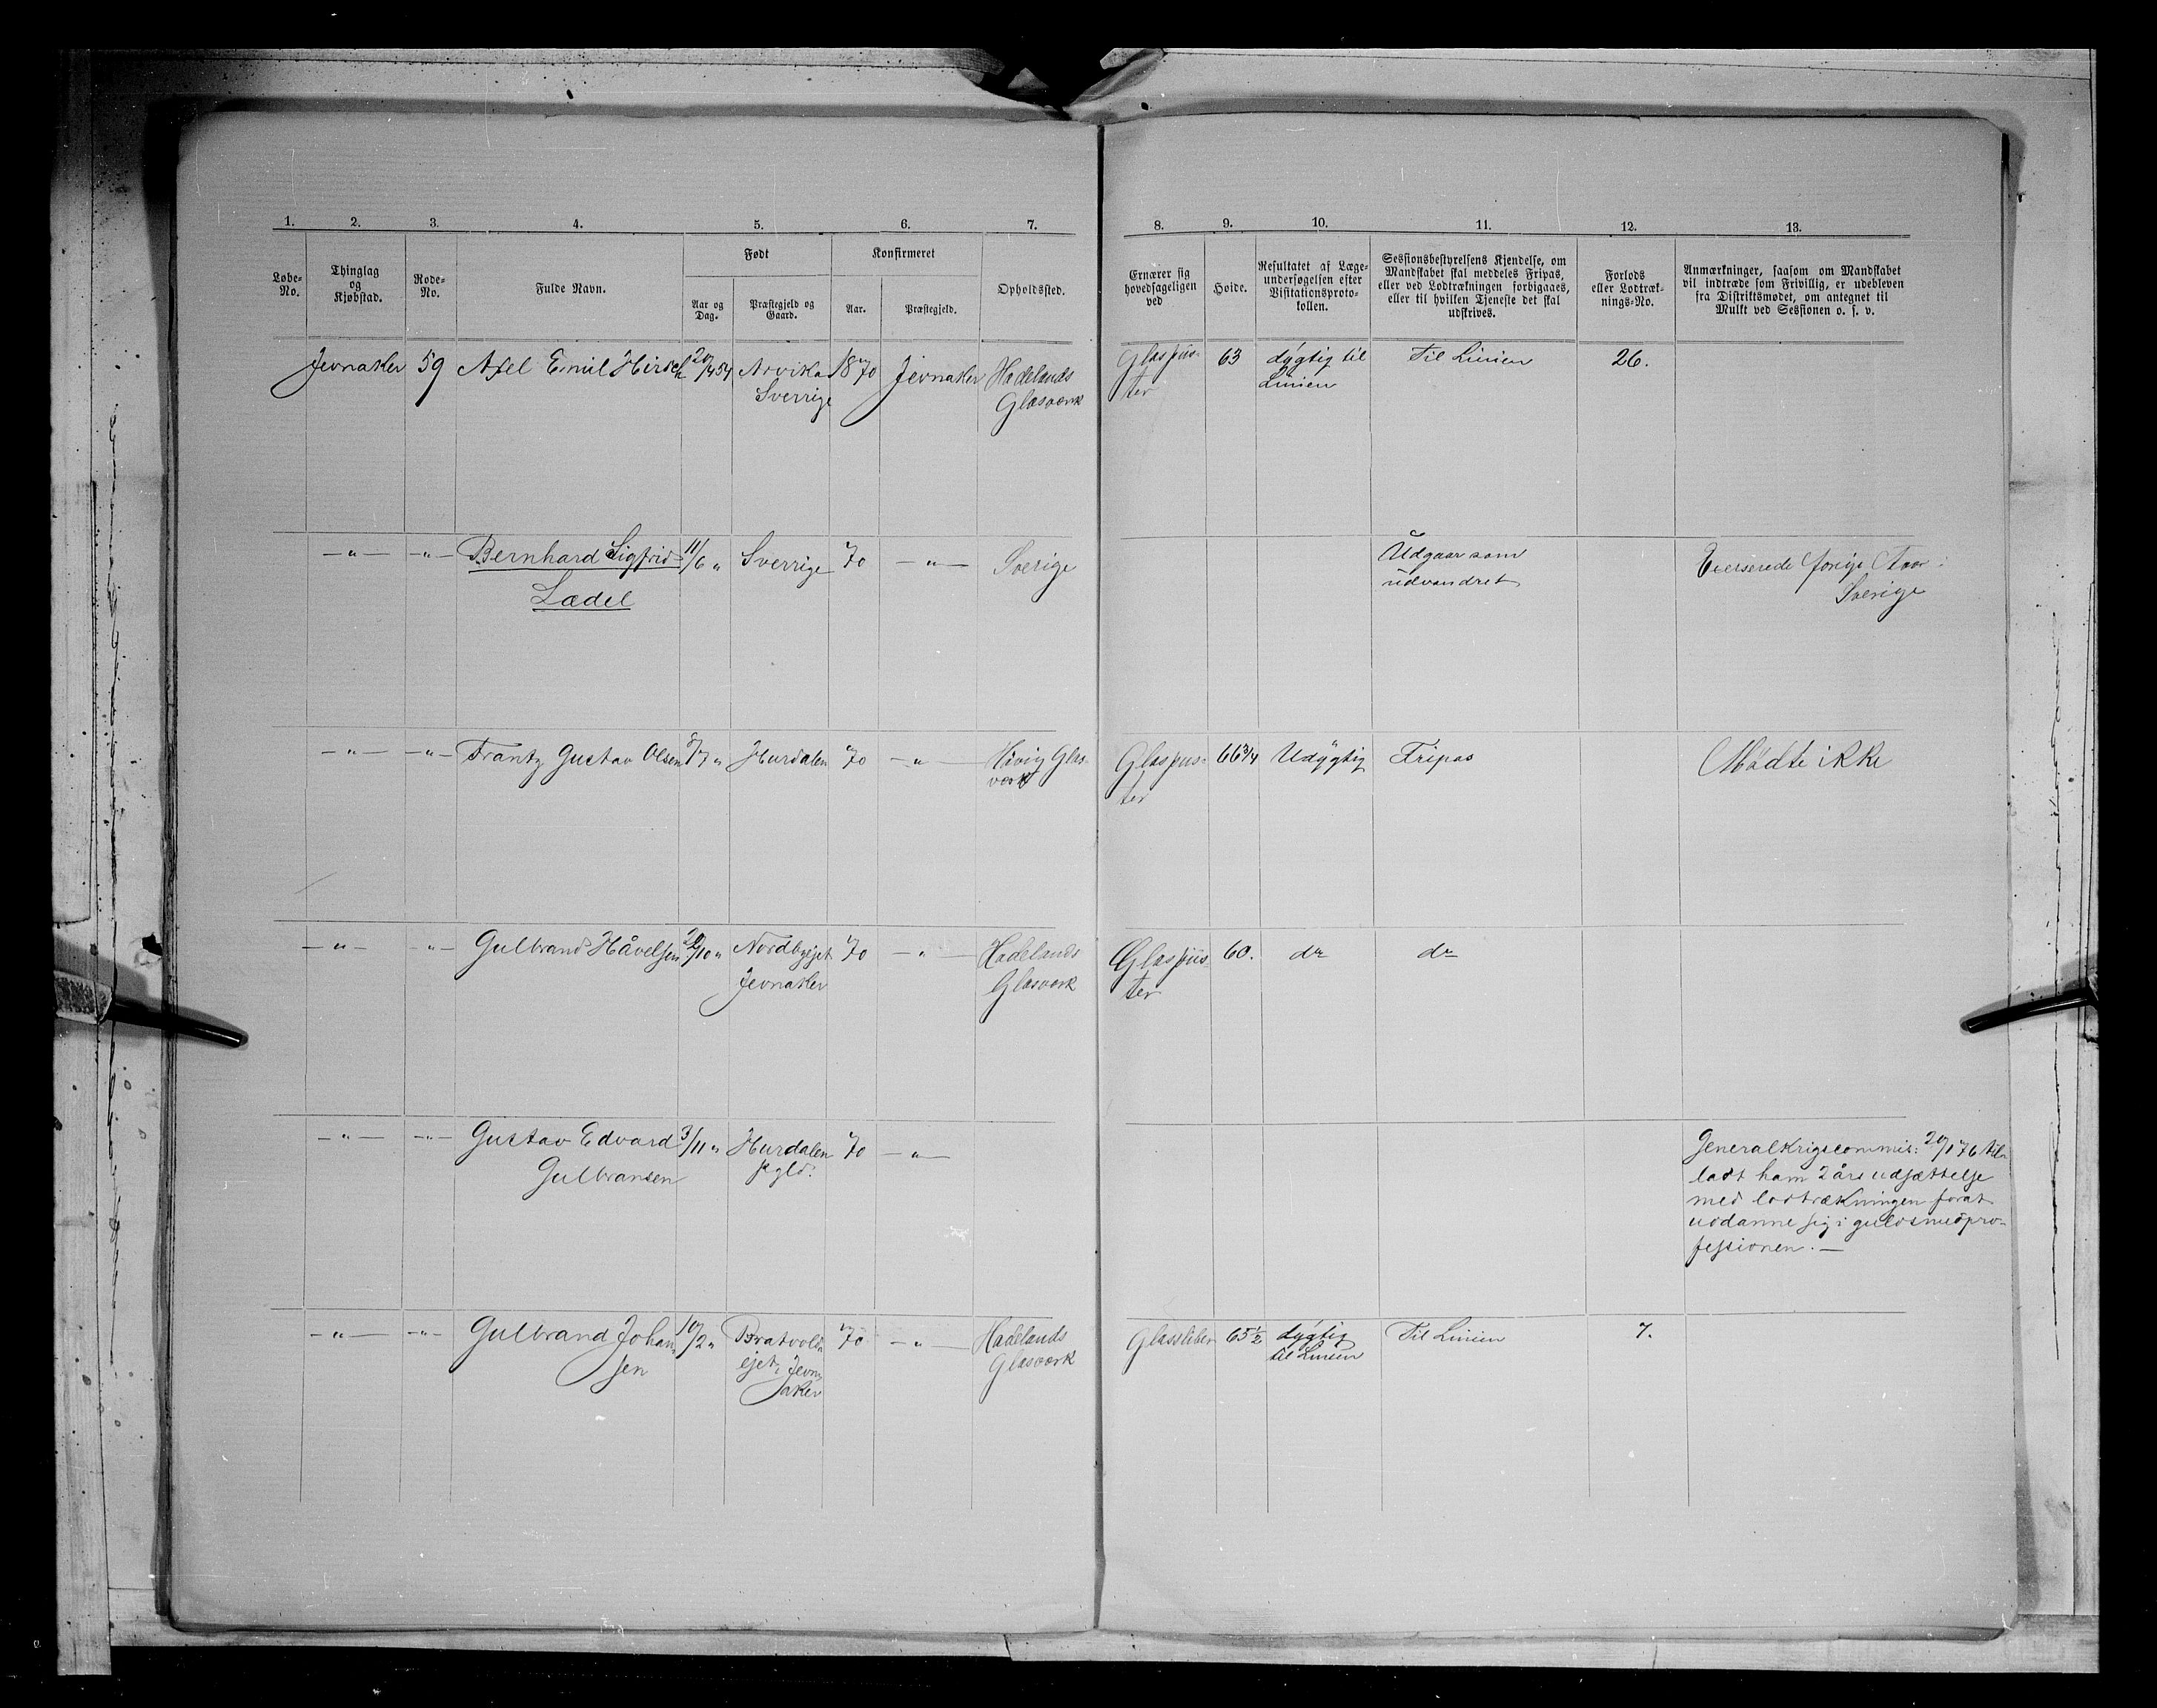 1. 2. 3. 4. 5. 6. 7. 8. 9. 10. 11. 12. 13.
Løbe-No.
Thinglag og Kjøbstad.
Rode-No.
Fulde Navn.
Født
Aar og Dag.
Præstegjeld og Gaard.
Konfirmeret
Aar.
Præstegjeld.
Opholdssted.
Ernærer sig hovedsageligen ved
Høide.
Resultatet af Læge-undersøgelsen efter Visitationsproto-kollen.
Sessionsbestyrelsens Kjendelse, om Mandskabet skal meddeles Fripas, eller ved Lodtrækningen forbigaaes, eller til hvilken Tjeneste det skal udskrives.
Forlods eller Lodtræk-nings-No.
Anmærkninger, saasom om Mandskabet vil indtræde som Frivillig, er udebleven fra Distriktsmødet, om antegnet til Mulkt ved Sessionen o. s. v.
Jevnaker 59 Axel Emil Hirsch 20/4 54 Arvika 1870 Jevnaker Hadelands Glaspus- 63 dygtig til Til Linien 26.
Sverrige Glasværk ter Linien
—"— —"— Bernhard Sigfrid 11/6 " Sverrige 70 —"— Sverige Udgaar som Exerserede forige Aar i
Lædel udvandret Sverige
—"— —"— Frantz Gustav Olsen 8/7 " Hurdalen 70 —"— Høvig Glas- Glaspus- 66 3/4 Udygtig Fripas Mødte ikke
værk ter
—"— —"— Gulbrand Håvelsen 20/10 " Nordbyejet 70 —"— Hadelands Glaspus- 60. do do
Jevnaker Glasværk ter
—"— —"— Gustav Edvard 3/11 " Hurdalen 70 —"— Generalkrigscommis: 20/1 76 til-
Gulbransen pgld. ladt ham 2 års udsættelse
med lodtrækningen forat
uddanne sig i guldsmedpro-
fessionen. —
—"— —"— Gulbrand Johan- 10/2 " Bratvold- 70 —"— Hadelands Glassliber 65 1/2 dygtig Til Linien 7.
sen ejet, Jevn- Glasværk til Linien
aker